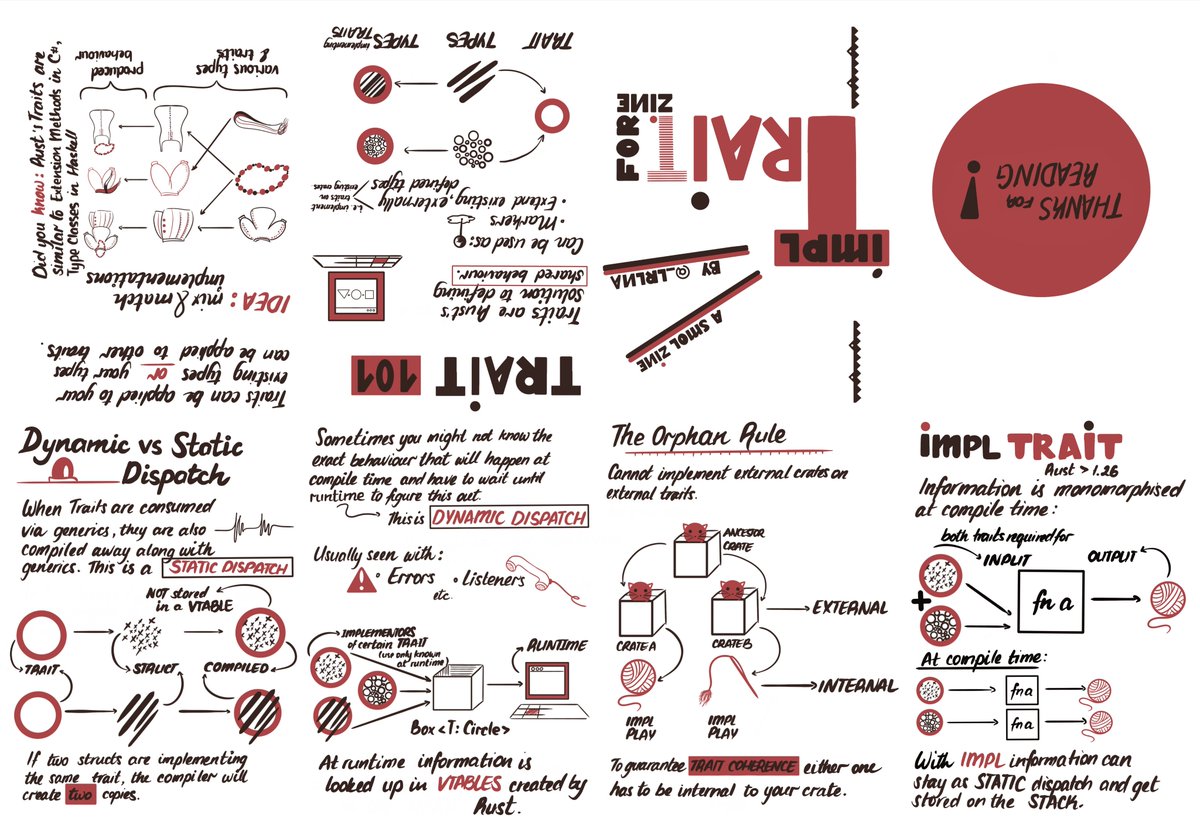 IMPL
TRAIT
FORE
ZINE
BY @_LRLNA
A SMOL ZINE
TRAIT 101
Traits are Rust's
solution to defining
shared behaviour.
Can be used as:
• Markers
• Extend existing, externally
defined types
i.e. implement
traits on
existing crates
TRAIT
TYPES
TYPES implementing
TRAITS
Traits can be applied to your
existing types or your types
can be applied to other traits.
IDEA: mix & match
implementations
various types
& traits
produced
behaviour
Did you know: Rust's Traits are
similar to Extension Methods in C#,
Type Classes in Haskell
Dynamic vs Static
Dispatch
When Traits are consumed
via generics, they are also
compiled away along with
generics. This is a STATIC DISPATCH
NOT stored
in a VTABLE
TRAIT
STRUCT
COMPILED
If two structs are implementing
the same trait, the compiler will
create two copies.
Sometimes you might not know the
exact behaviour that will happen at
compile time and have to wait until
runtime to figure this out.
This is DYNAMIC DISPATCH
Usually seen with:
• Errors
• Listeners
etc.
IMPLEMENTORS
of certain TRAIT
(use only known
at runtime)
RUNTIME
Box <T: Circle>
At runtime information is
looked up in VTABLES created by
Rust.
The Orphan Rule
Cannot implement external crates on
external traits.
ANCESTOR
CRATE
CRATE A
CRATE B
EXTERNAL
INTERNAL
IMPL
PLAY
IMPL
PLAY
To guarantee TRAIT COHERENCE either one
has to be internal to your crate.
IMPL TRAIT
Rust > 1.26
Information is monomorphised
at compile time:
both traits required for
INPUT
OUTPUT
+
fn a
At compile time:
fn a
fn a
With IMPL information can
stay as STATIC dispatch and get
stored on the STACK.
THANKS FOR
READING